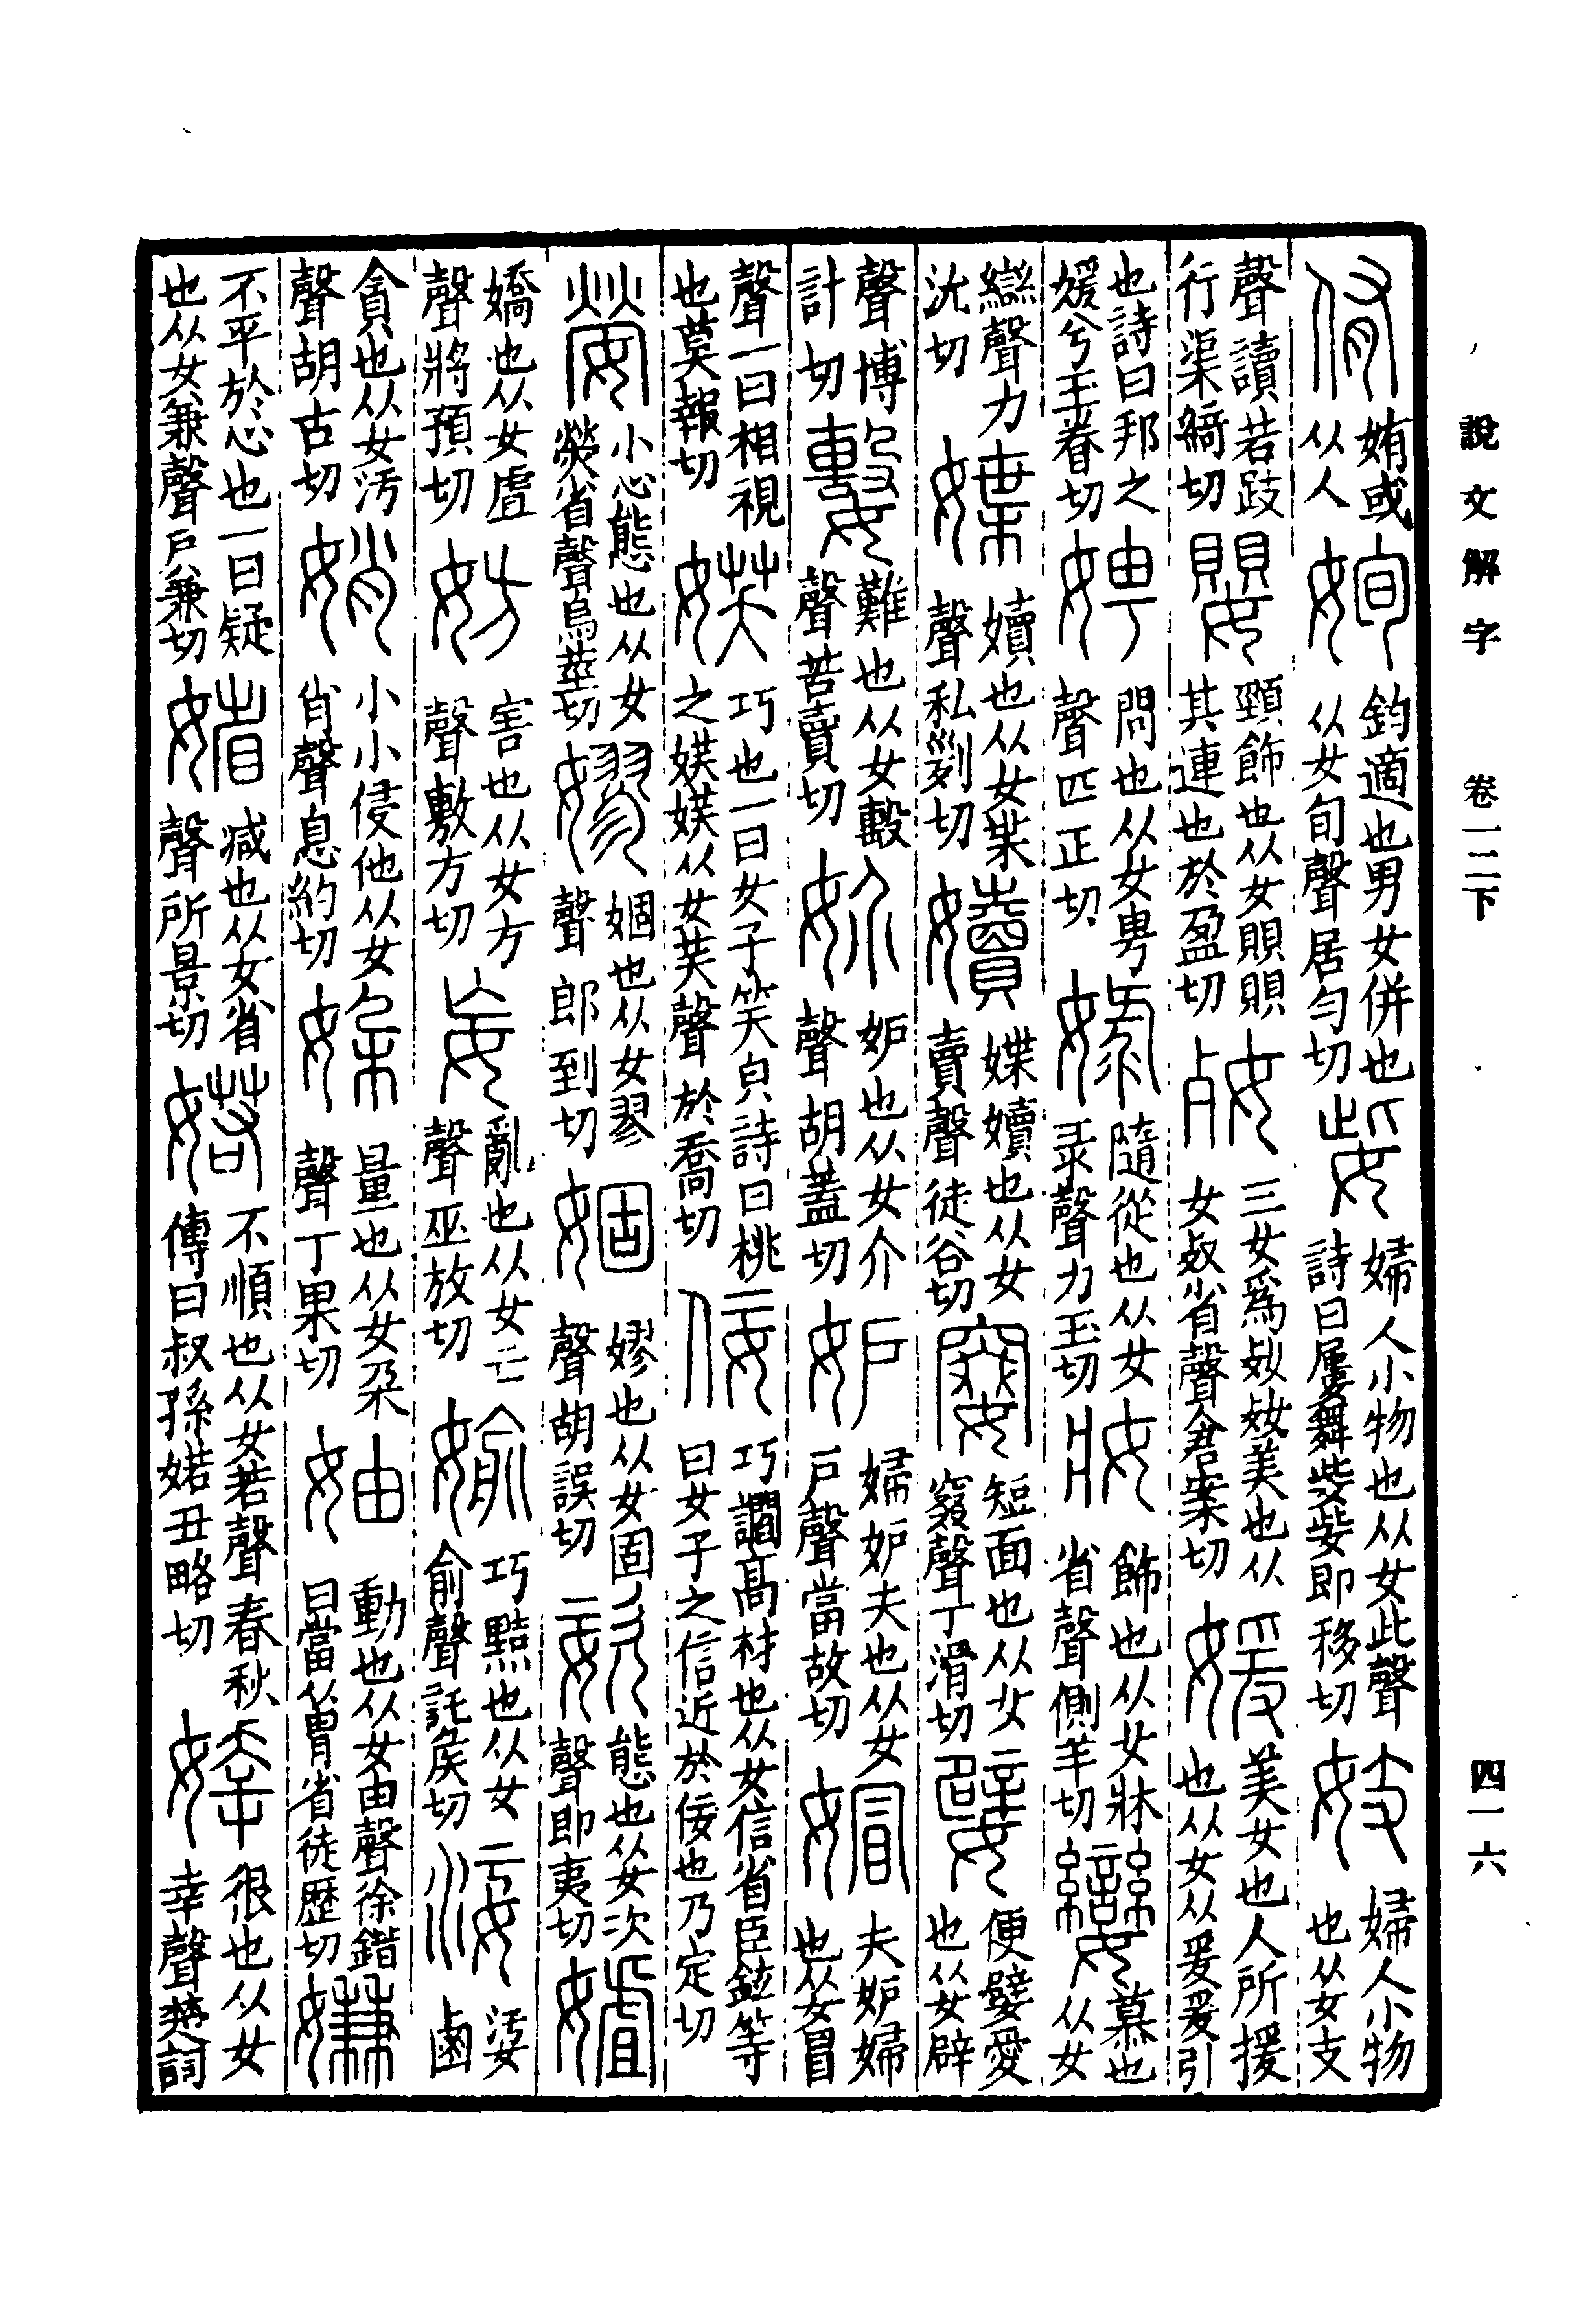 侑姷或从人姰鈞適也男女併也从女旬聲居勻切姕婦人小物也从女此聲詩曰屢舞姕姕即移切妓婦人小物也从女支
聲讀若跂行渠綺切嬰頸飾也从女賏賏其連也於盈切㛑三女爲㛑㛑美也从女𣦼省聲倉案切媛美女也人所援也从女从爰爰引
也詩曰邦之媛兮玉眷切娉問也从女甹聲匹正切娽隨從也从女录聲力玉切妝飾也从女牀省聲側羊切孌慕也从女
䜌聲力沇切媟嬻也从女枼聲私列切嬻媟嬻也从女𧶠聲徒谷切㜘短面也从女窡聲丁滑切嬖便嬖愛也从女辟
聲博計切㜅難也从女毄聲苦賣切妎妒也从女介聲胡蓋切妒婦妒夫也从女戶聲當故切媢夫妒婦也从女冒
聲一曰相視也莫報切媄巧也一曰女子笑皃詩曰桃之媄媄从女芺聲於喬切佞巧讇高材也从女信省臣鉉等曰女子之信近於佞也乃定切
嫈小心態也从女熒省聲烏莖切嫪婟也从女翏聲郎到切婟嫪也从女固聲胡誤切姿態也从女次聲即夷切嫭
嬌也从女虘聲將預切妨害也从女方聲敷方切妄亂也从女亡聲巫放切媮巧黠也从女俞聲託矦切洿婆鹵
貪也从女污聲胡古切娋小小侵也从女肖聲息約切㛆量也从女朵聲丁果切妯動也从女由聲徐鍇曰當从胄省徒歷切嫌
不平於心也一曰疑也从女兼聲戶兼切媘減也从女省聲所景切婼不順也从女若聲春秋傳曰叔孫婼丑略切婞很也从女幸聲楚詞
說文解字 卷一二下 四一六